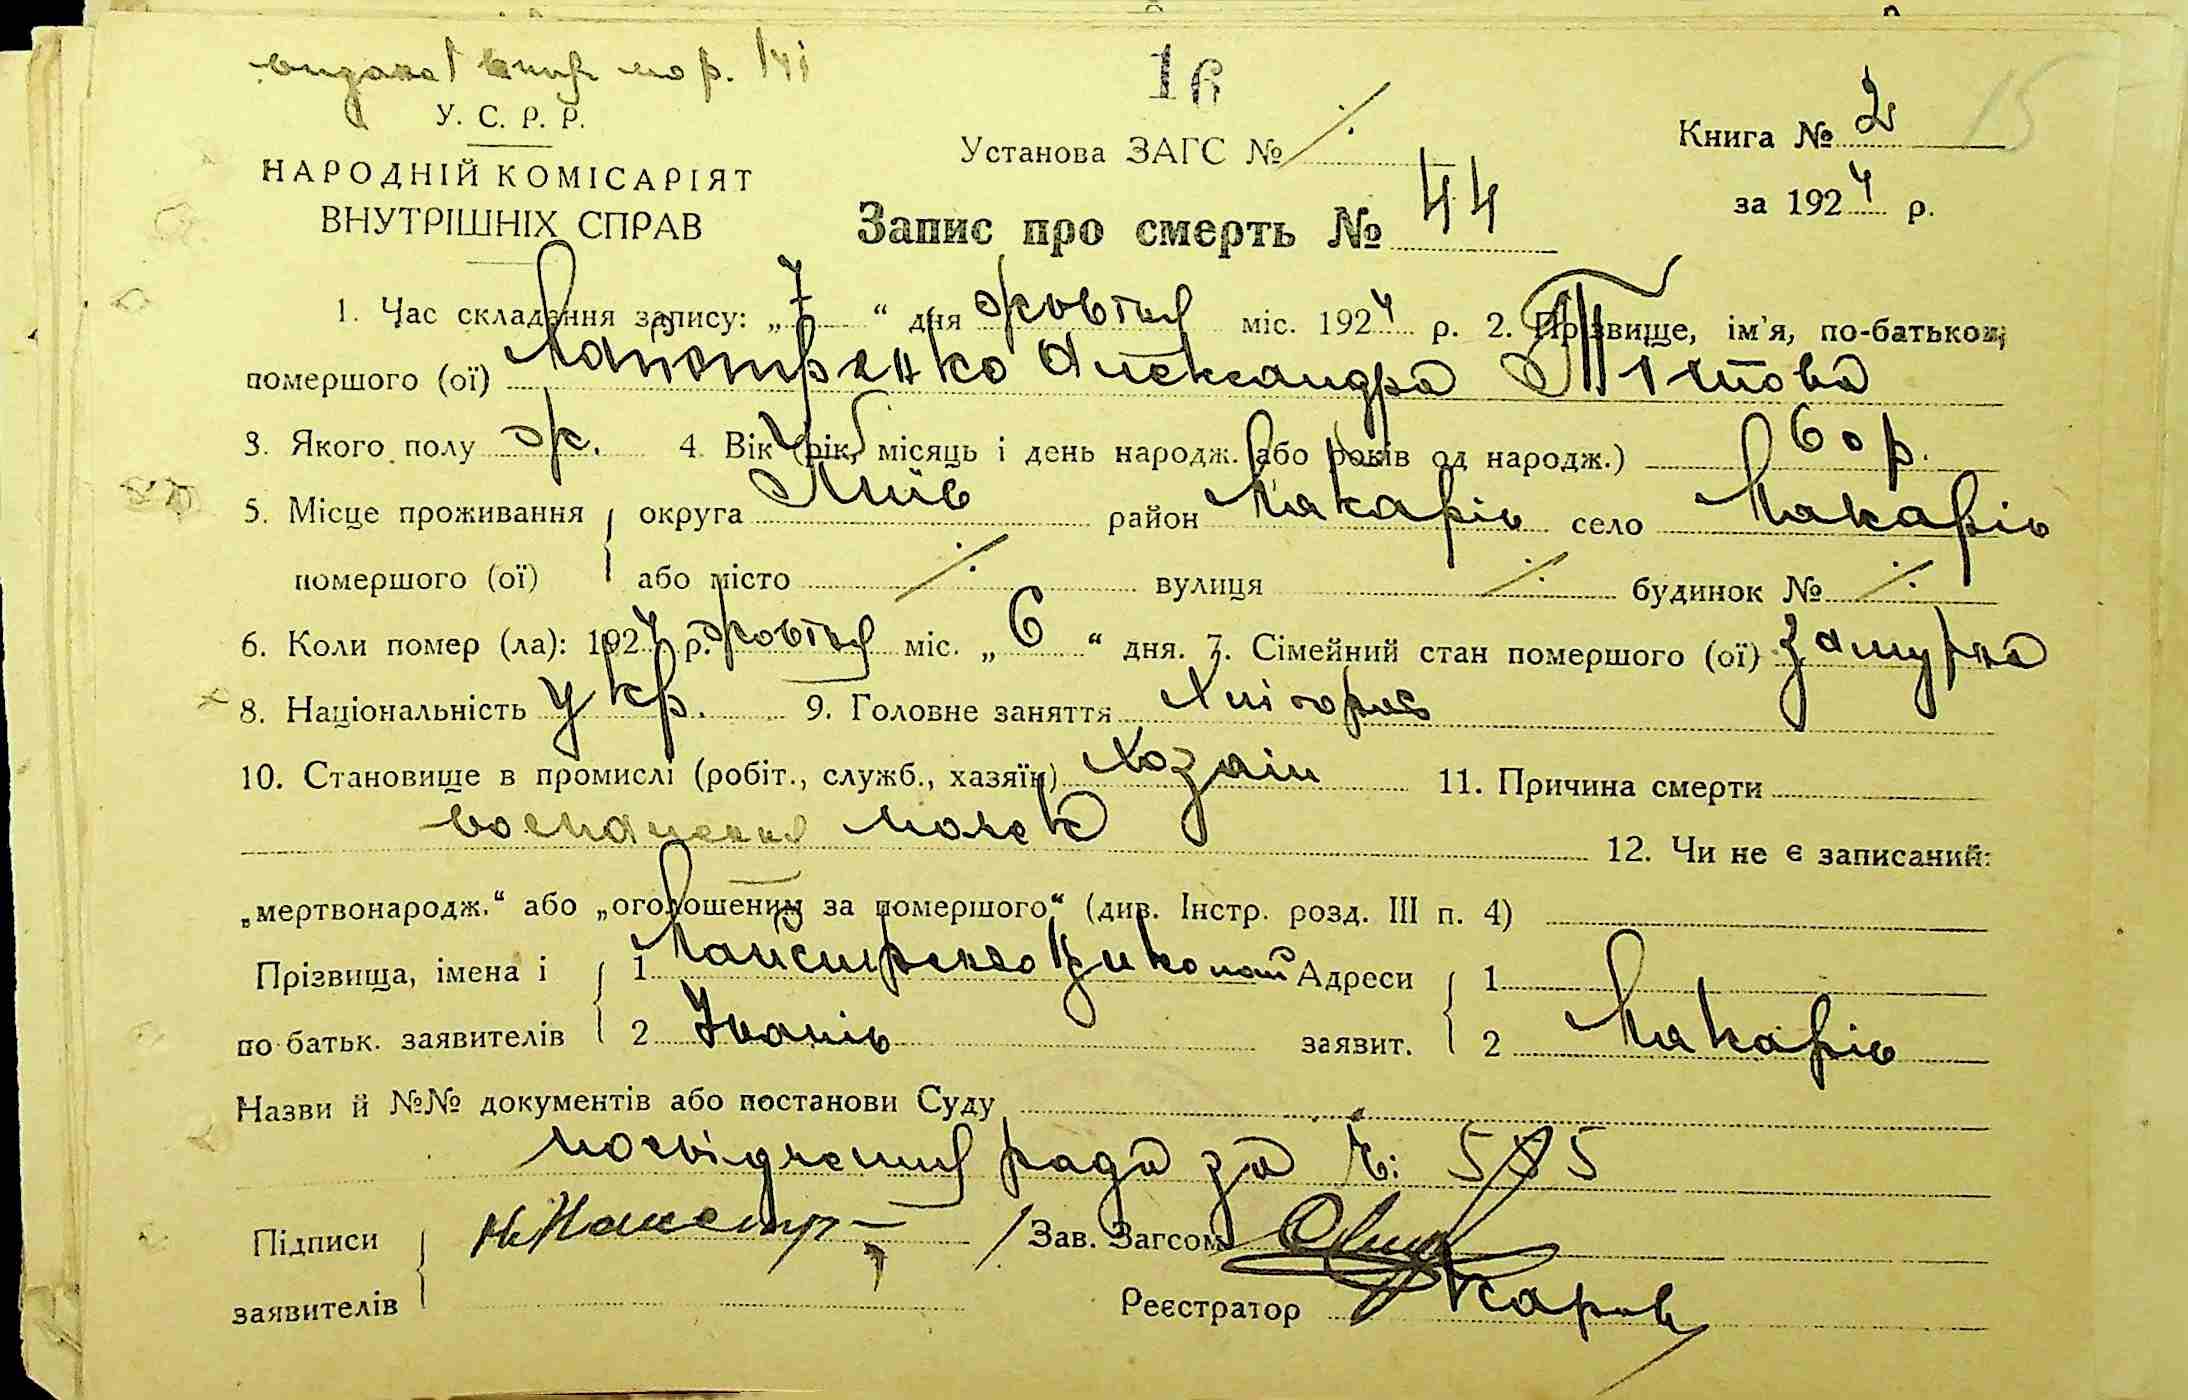 16
15
У. С. Р. Р.
НАРОДНІЙ КОМІСАРІЯТ
ВНУТРІШНІХ СПРАВ
Установа ЗАГС №
Книга № 2
за 1924 р.
Запис про смерть № 44
1. Час складання запису: „7“ дня жовтня міс. 1924 р. 2. Прізвище, ім'я, по-батькові
помершого (ої) Олександра Тітова
3. Якого полу ж. 4. Вік (рік, місяць і день народж. або років од народж.) 60 р.
5. Місце проживання округа Київ район Макарів село Макарів
помершого (ої) або місто вулиця будинок №
6. Коли помер (ла): 1924 р. жовтня міс. „6“ дня. 7. Сімейний стан помершого (ої) замужня
8. Національність укр. 9. Головне заняття Хлібороб
10. Становище в промислі (робіт., служб., хазяїн) Хозаїн 11. Причина смерти
воспаления 12. Чи не є записаний:
„мертвонародж.“ або „оголошеним за помершого“ (див. Інстр. розд. III п. 4)
Прізвища, імена і 1 Адреси 1
по батьк. заявителів 2 Іванів заявит. 2 Макарів
Назви й №№ документів або постанови Суду
посвідчення ради за Ч: 555
Підписи Зав. Загсом
заявителів Реєстратор